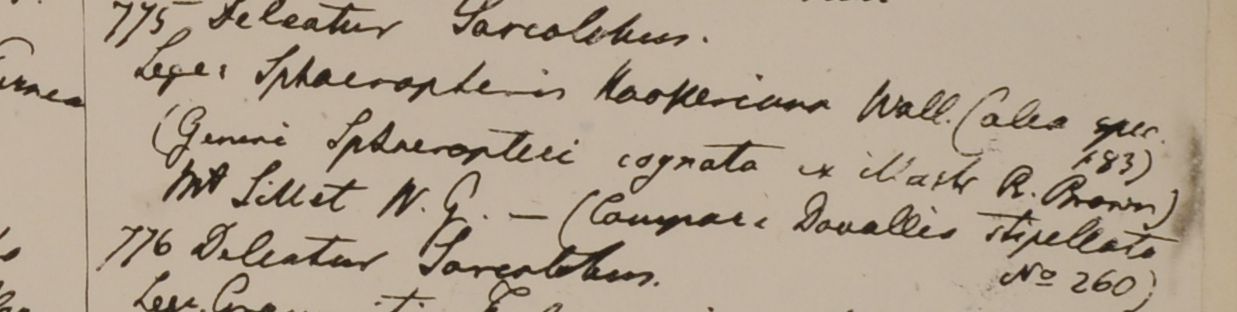 775 Deleatur Sarcolobus.
Lege: Sphaeropteris Hookeriana Wall. (alia spec. 183)
(Generi Sphaeropteri cognata ex illustr R. Brown)
Mt Sillet N. G. — (Compare Davallia stipellata No 260)
776 Deleatur Sarcolobus.
Lege